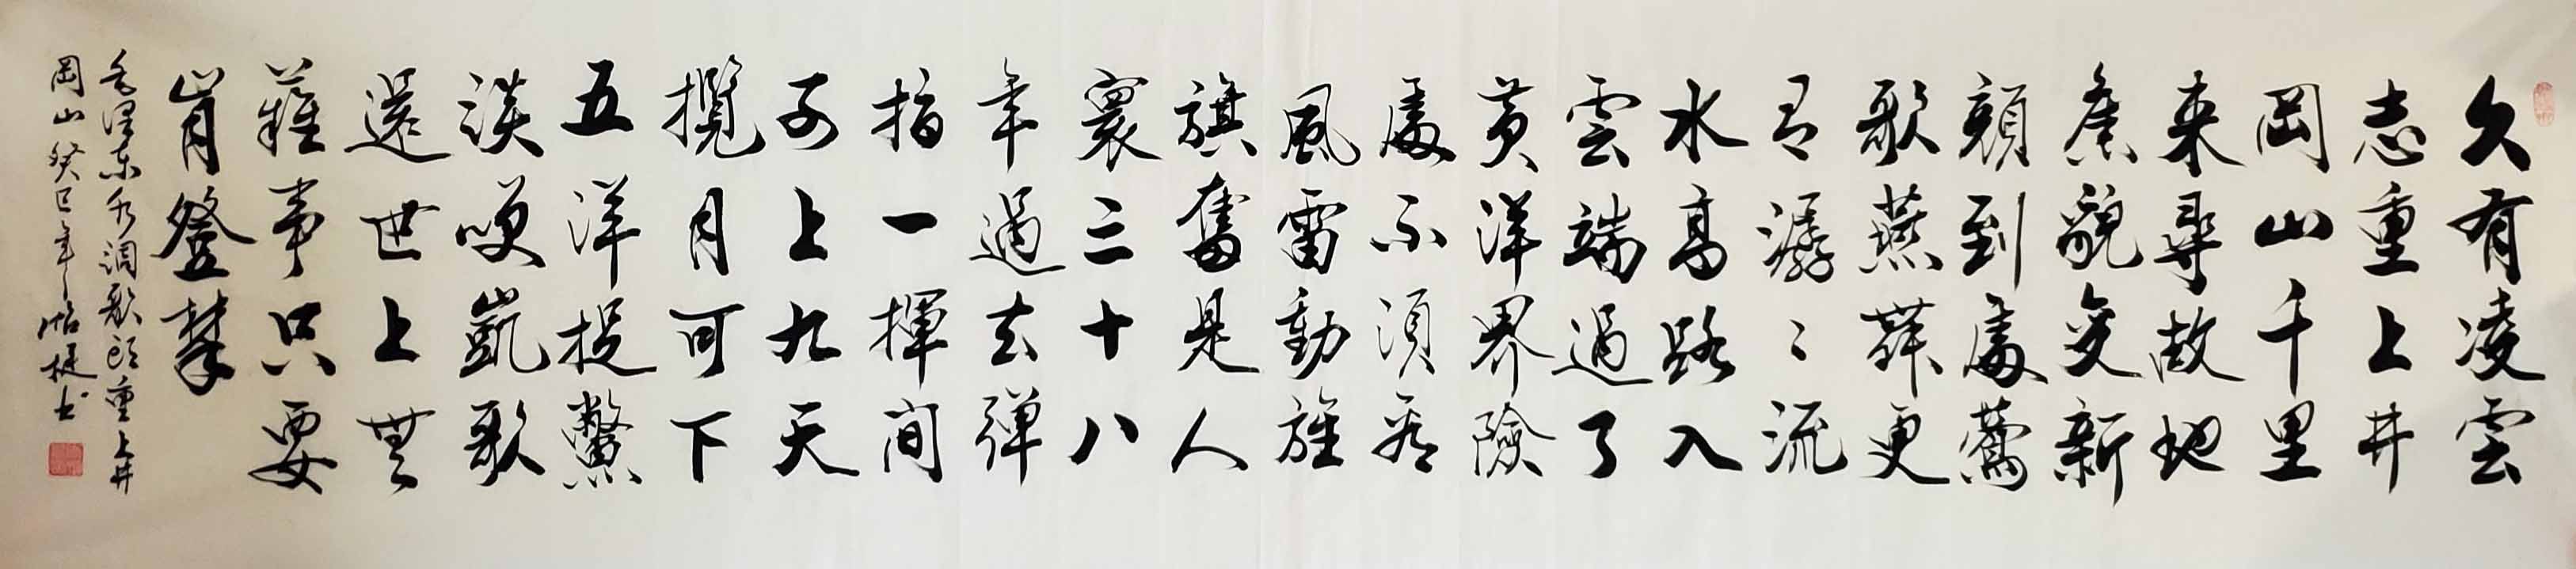 久有凌雲
志重上井
岡山千里
来尋故地
舊貌變新
顔到處鶯
歌燕舞更
有潺〻流
水高路入
雲端過了
黄洋界險
處不須看
風雷動旌
旗奮是人
寰三十八
年過去彈
指一揮间
可上九天
攬月可下
五洋捉鱉
談笑凱歌
還世上無
難事只要
肯登攀
毛澤東水調歌頭重上井
岡山癸巳年書